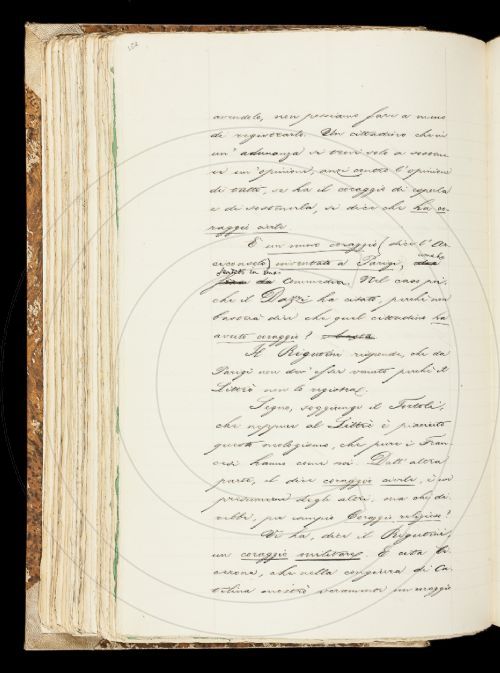 avendolo, non possiamo fare a meno
di registrarlo. Un cittadino che in
un' adunanza si trovi solo a sostene
re un' opinione, anzi contro l'opinione
di tutti, se ha il coraggio di esporla
e di sostenerla, si dice che ha co-
raggio civile.
È un nuovo coraggio (dice l'Ar
ciconsolo) inventato a Parigi, anche
in una
da Commedia. Nel caso poi,
che il Dazzi ha citato, perchè non
basterà dire che quel cittadino ha
avuto coraggio? Basta
Il Rigutini risponde, che da
Parigi non dev' esser venuto perchè il
Littrè non lo registra.
Segno, soggiunge il Tortoli,
che neppure al Littrè è piaciuto
questo neologismo, che pure i Fran-
cesi hanno come noi. Dall' altra
parte, il dire coraggio civile, è un
presumerne degli altri. ma che di
rebbe, per esempio Coraggio religioso?
Vi ha, dice il Rigutini,
un coraggio militare. E cita Ci
cerone, che nella congiura di Ca-
tilina mostrò veramente un coraggio